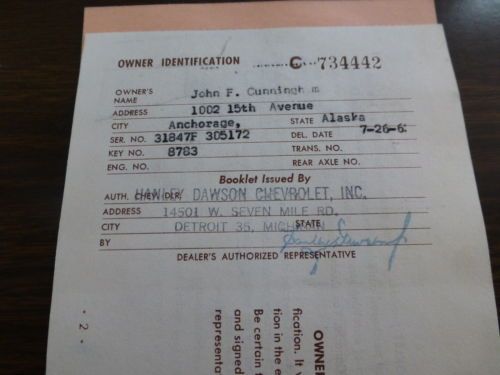 OWNER IDENTIFICATION C-734442
OWNER'S NAME John F. Cunningh m
ADDRESS 1002 15th Avenue
CITY Anchorage, STATE Alaska
SER. NO. 31847F 305172 DEL. DATE 7-26-6
KEY NO. 8783 TRANS. NO.
ENG. NO. REAR AXLE NO.
Booklet Issued By
AUTH. CHEV. DLR. HANLEY DAWSON CHEVROLET, INC.
ADDRESS 14501 W. SEVEN MILE RD.
CITY DETROIT 35, MICHIGAN STATE
BY
DEALER'S AUTHORIZED REPRESENTATIVE
· 2 ·
OWNER
fication. It
tion in the e
Be certain
and signed
representa